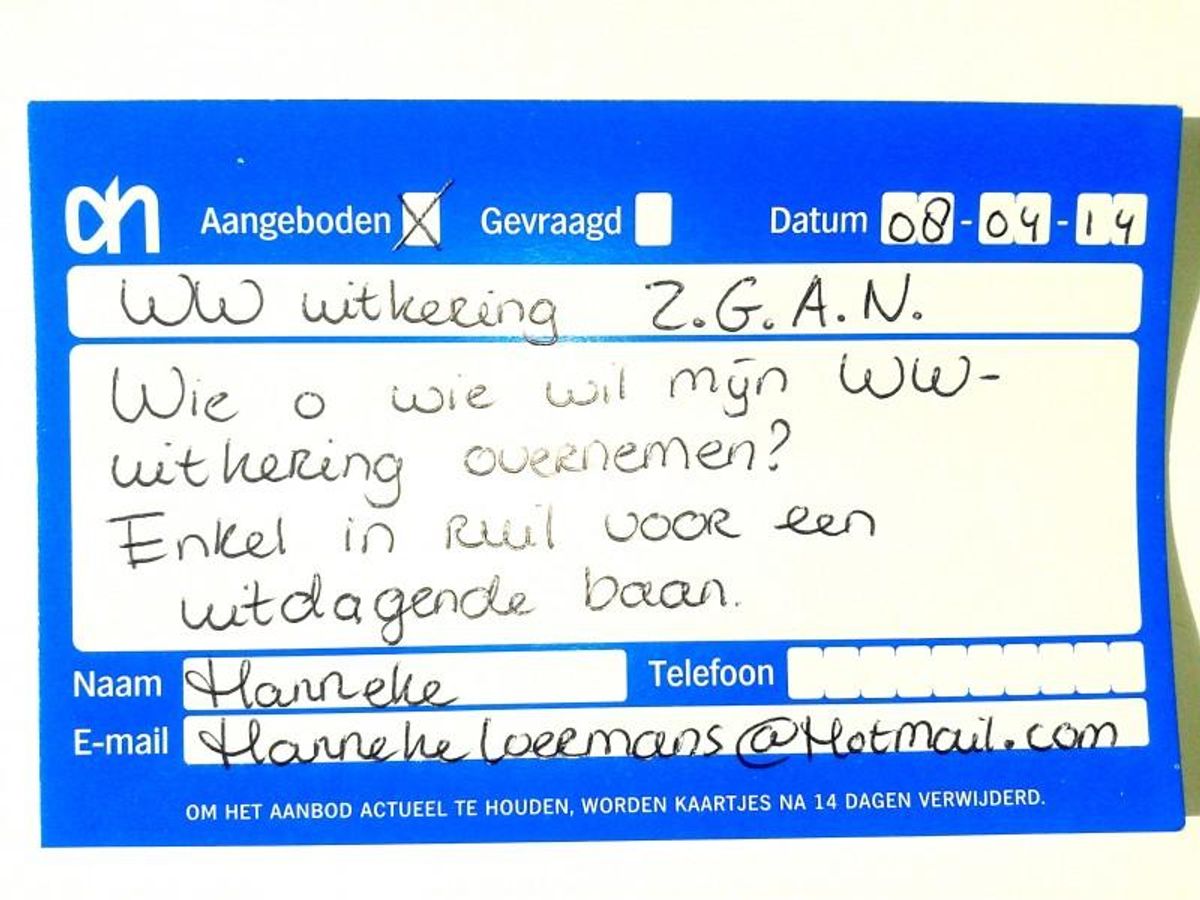 ah Aangeboden X Gevraagd Datum 08-04-14
WW uitkering Z.G.A.N.
Wie o wie wil mijn WW-
uitkering overnemen?
Enkel in ruil voor een
uitdagende baan.
Naam Hanneke Telefoon
E-mail HannekeLoermans@Hotmail.com
OM HET AANBOD ACTUEEL TE HOUDEN, WORDEN KAARTJES NA 14 DAGEN VERWIJDERD.